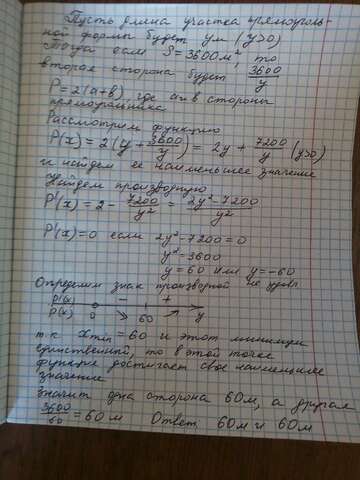 Пусть длина участка прямоуголь-
ной формы будет y м (y>0)
Тогда если S = 3600 м², то
вторая сторона будет 3600/y
P = 2(a+b) где a и b стороны
прямоугольника
Рассмотрим функцию
P(x) = 2(y + 3600/y) = 2y + 7200/y (y>0)
и найдем ее наименьшее значение
Найдем производную
P'(x) = 2 - 7200/y² = 2y²-7200/y²
P'(x)=0 если 2y²-7200=0
y²=3600
y=60 или y=-60
Определим знак производной не удовл
P'(x) 0 - +
P(x) 0 ↘ 60 ↗ y
т.к xmin = 60 и этот минимум
единственный, то в этой точке
функция достигает свое наименьшее
значение
Значит одна сторона 60м, а другая
3600/60 = 60 м Ответ 60м и 60м